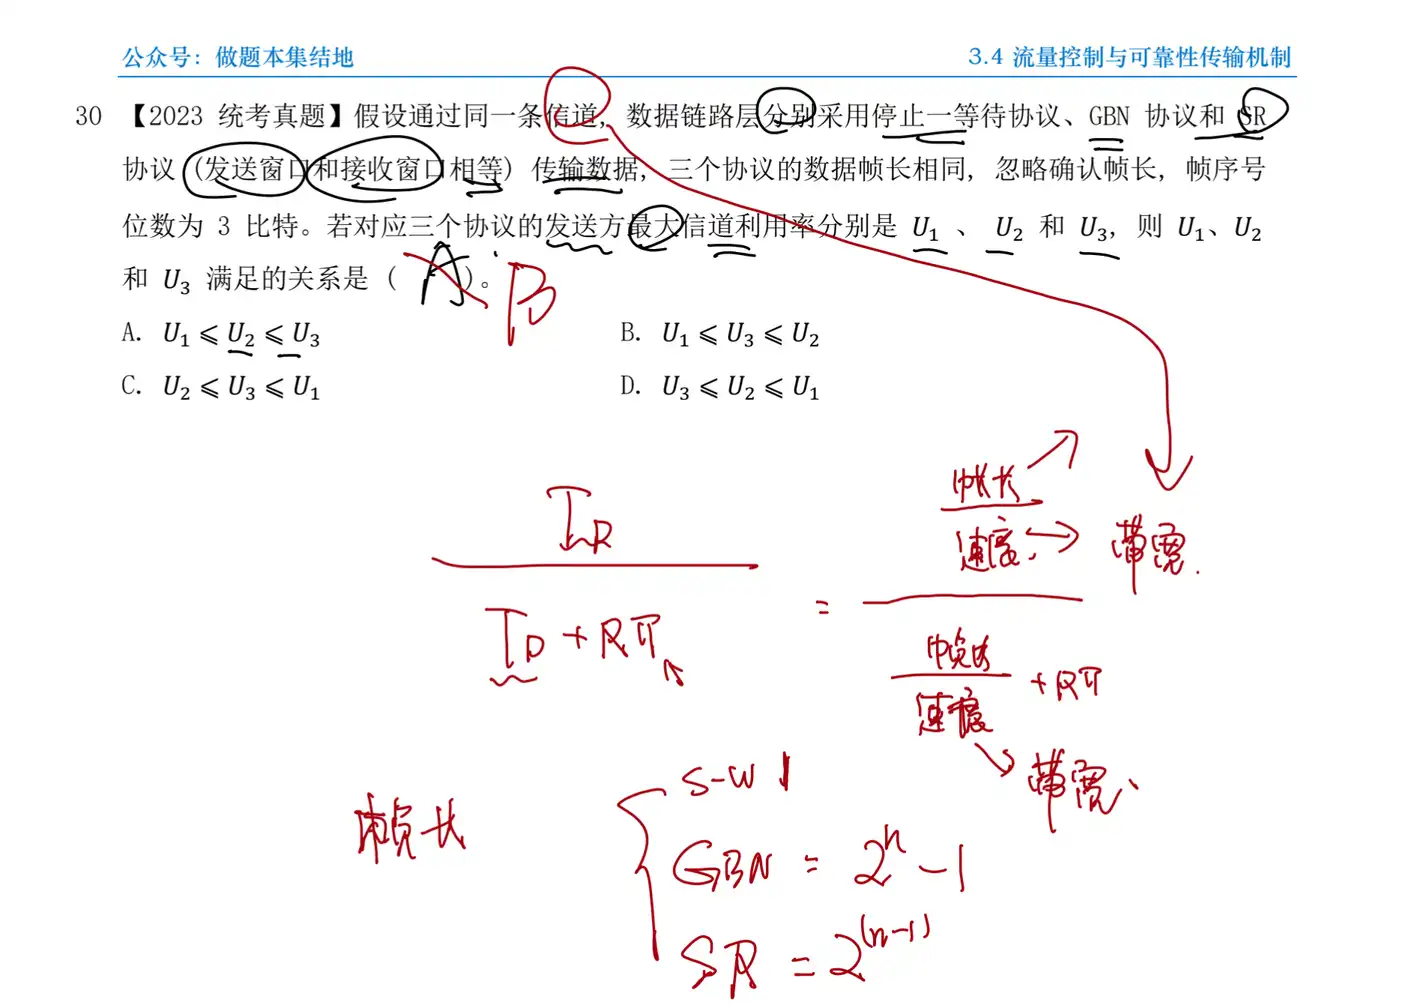 公众号：做题本集结地 3.4 流量控制与可靠性传输机制
30 【2023 统考真题】假设通过同一条信道，数据链路层分别采用停止一等待协议、GBN 协议和 SR
协议（发送窗口和接收窗口相等）传输数据，三个协议的数据帧长相同，忽略确认帧长，帧序号
位数为 3 比特。若对应三个协议的发送方最大信道利用率分别是 U₁ 、 U₂ 和 U₃，则 U₁、U₂
和 U₃ 满足的关系是（ A ）。 B
A. U₁ ⩽ U₂ ⩽ U₃ B. U₁ ⩽ U₃ ⩽ U₂
C. U₂ ⩽ U₃ ⩽ U₁ D. U₃ ⩽ U₂ ⩽ U₁
帧长
T_D 速度 带宽
=
T_D + RTT 帧长
速度 + RTT
带宽
S-W 1
帧长 GBN = 2ⁿ - 1
SR = 2^(n-1)